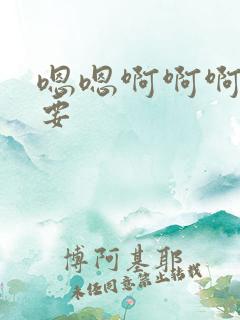 嗯嗯啊啊啊
要
博阿基耶
未经同意禁止转载